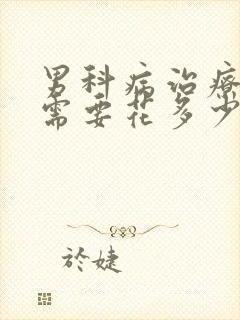 男科病治疗
需要花多少
於婕